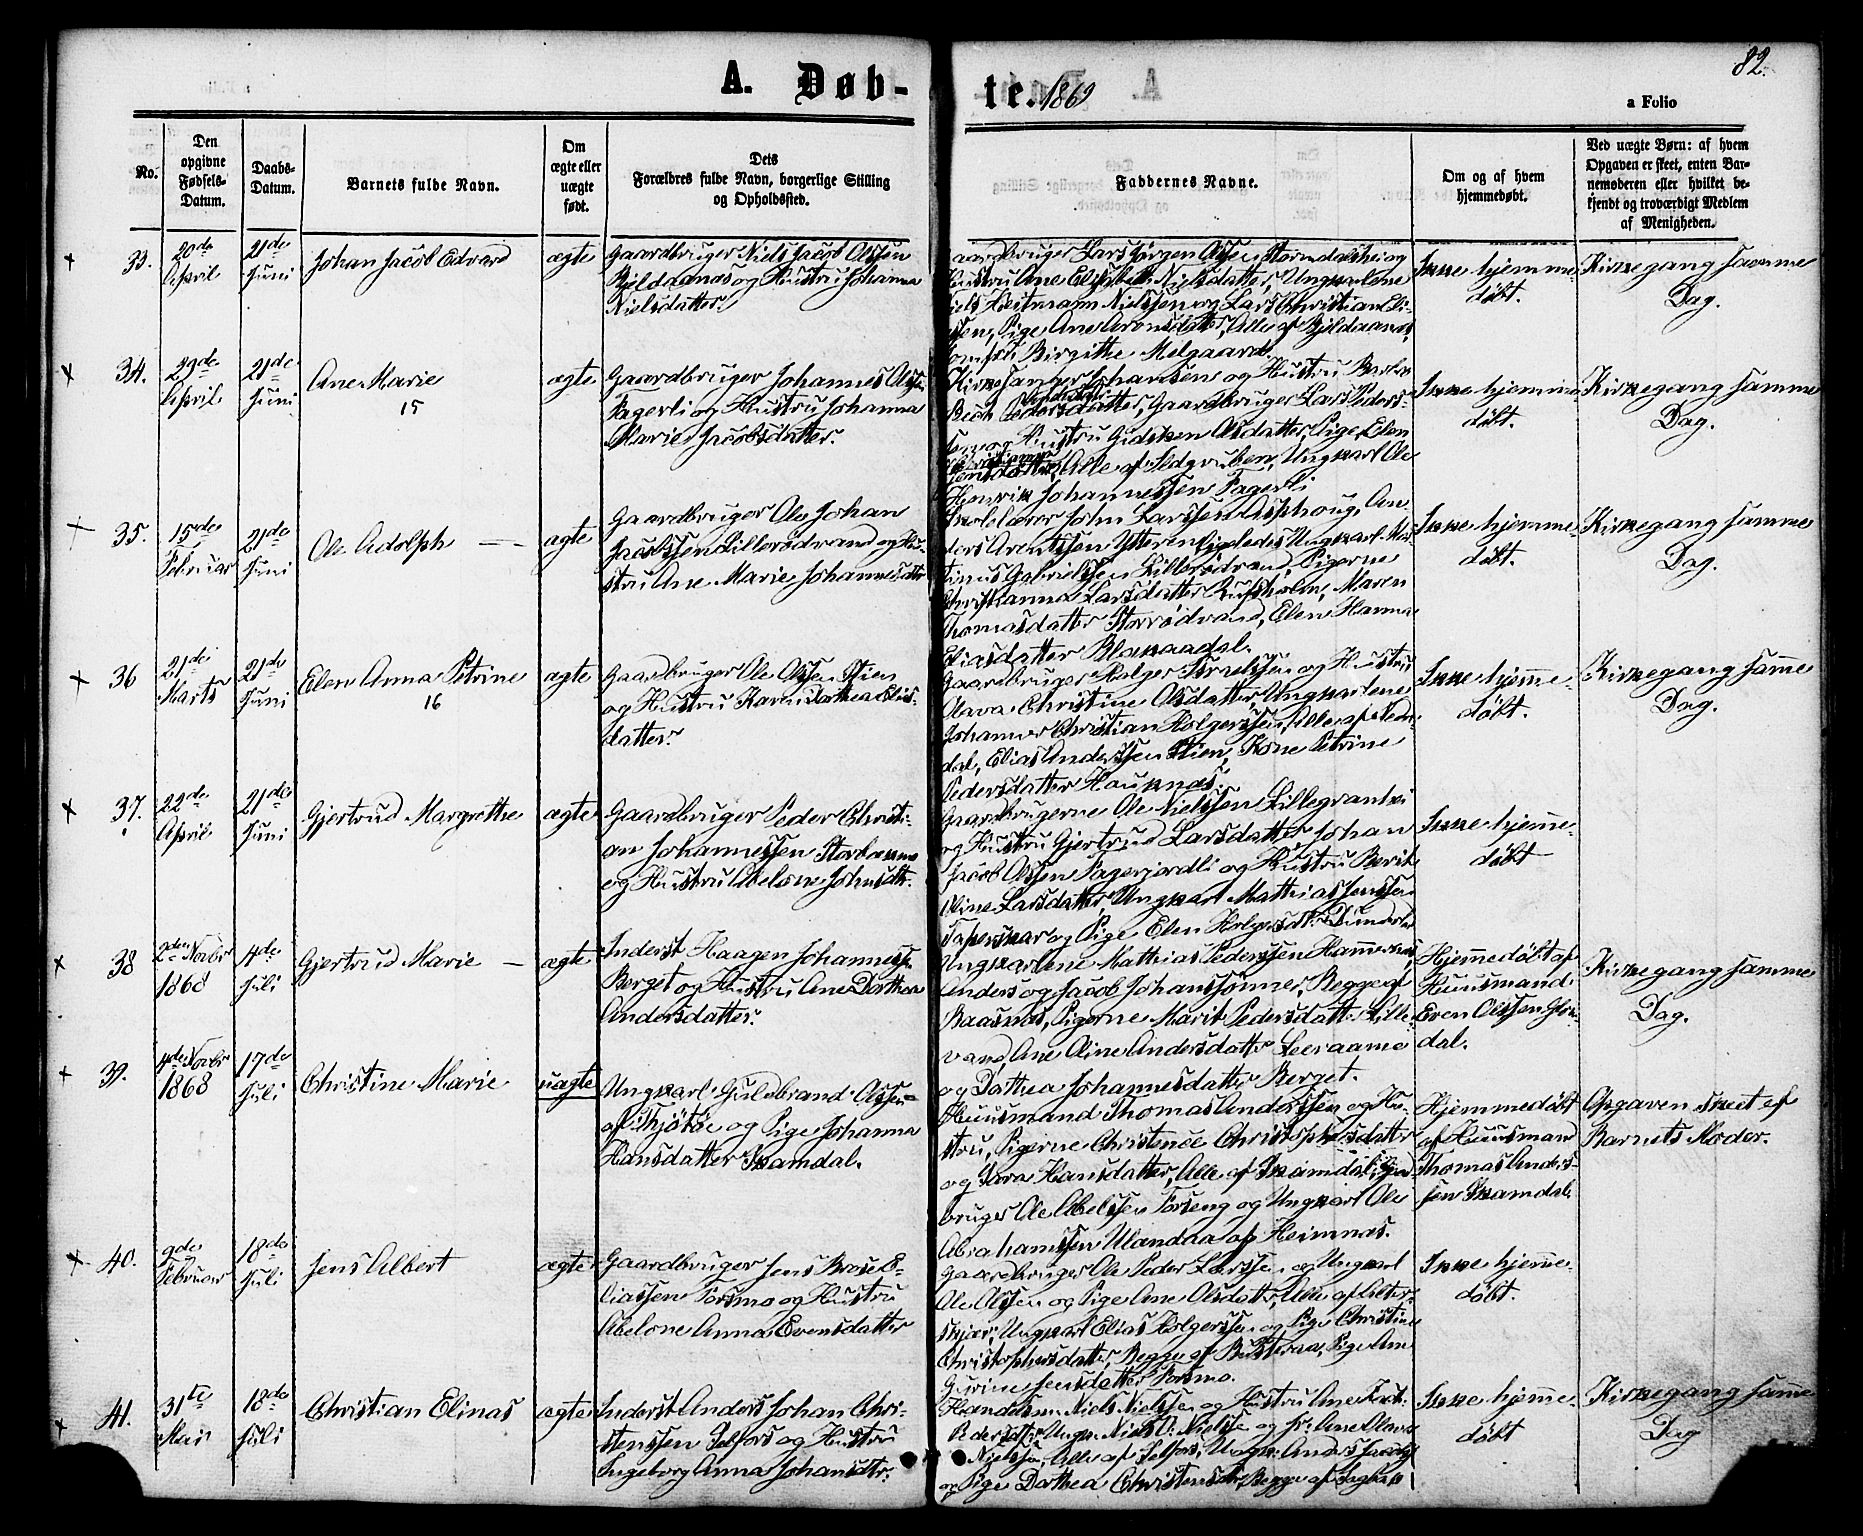 82.
A. Døb-
te. 1869
a Folio
No.
Den
opgivne
Fødsels-
Datum.
Daabs-
Datum.
Barnets fulde Navn.
Om
ægte eller
uægte
født.
Dets
Forældres fulde Navn, borgerlige Stilling
og Opholdssted.
Faddernes Navne.
Om og af hvem
hjemmedøbt.
Ved uægte Børn: af hvem
Opgaven er skeet, enten Bar-
nemoderen eller hvilket be-
kjendt og troværdigt Medlem
af Menigheden.
33.
20de
April
21de
Juni
Johan Jacob Edvard
ægte
Gaardbruger Niels Jacob Olssen
Bjeldaanes og Hustru Johanna
Nielsdatter.
aardbruger Lars Jørgen Olssen Stormdalshei og
Hustru Ane Elisabeth Nielsdatter, Ungkarlene
Niels Nielssen og Lars Christian Eli-
assen, Pige Ane Aronsdatter, Alle af Bjeldaanes,
Jomfru Birgithe Melgaard.
Ikke hjemme-
døbt.
Kirkegang samme
Dag.
34.
29de
April
21de
Juni
Ane Marie
15
ægte
Gaardbruger Johannes Olssen
Fagerli og Hustru Johanna
Marie Jacobsdatter.
Kirkesanger Johansen og Hustru
Pedersdatter, Gaardbruger Lars Peders-
sen og Hustru Gidsken Olsdatter, Pige Elen
Alle af Selgruben, Ungkarl Ole
Henrik Johannessen Fagerli
Ikke hjemme-
døbt.
Kirkegang samme
Dag.
35.
15de
Februar
21de
Juni
Ole Adolph —
ægte
Gaardbruger Ole Johan
Jacobssen Lillerødvand og Hu-
stru Ane Marie Johannesdatter
Skolelærer John Larssen Asphoug, An-
ders Arentssen Ytteren, Ungkarl Mar-
tinus Gabrielssen Lillerødvand, Pigerne
Christianna Larsdatter Rufsholm, Maren
Thomasdatter Storrødvand, Elen Hanna
Eliasdatter Blakaadal.
Ikke hjemme-
døbt.
Kirkegang samme
Dag.
36
21de
Marts
21de
Juni
Elen Anna Petrine
16
ægte
Gaardbruger Ole Olssen Stien
og Hustru Karen Dorthea Elias-
datter.
Gaardbruger Holger Israelssen og Hustru
Olava Christine Olsdatter, Ungkarlene
Johannes Christian Holgerssen, Alle af
dal, Elias Anderssen Stien, Kone Petrine
Pedersdatter Hauknæs.
Ikke hjemme-
døbt.
Kirkegang samme
Dag.
37.
22de
April
21de
Juni
Gjertrud Margrethe
ægte
Gaardbruger Peder Christi-
an Johannessen
og Hustru Abelone Johnsdtr.
Gaardbrugerne Ole Nielssen Lillegrantri
og Hustru Gjertrud Larsdatter, Johan
Jacob Olssen Fagerjordli og Hustru Berit
Oline Larsdatter, Ungkarl Mathias Jenssen
og Pige Elen Holgersdtr. Dunderl.
Ikke hjemme-
døbt
38
2den Novbr
1868
4de
Juli
Gjertrud Marie —
ægte
Inderst Haagen Johannessen
Berget og Hustru Ane Dorthea
Andersdatter.
Ungkarlene Mathias Pederssen Hammernæs,
Anders og Jacob Johanssønner, Begge af
Baasnæs, Pigerne Marit Pedersdatter Lille-
vand, Ane Oline Andersdatter Leeraamo
og Dorthea Johannesdatter Berget.
Hjemmedøbt af
Huusmand
Even Olssen Glom-
dal.
Kirkegang samme
Dag.
39.
4de Novbr
1868
17de
Juli
Christine Marie
uægte
Ungkarl Guldbrand Olssen
af Thjøtøe og Pige Johanna
Hansdatter Skamdal.
Huusmand Thomas Anderssen og Hu-
stru, Pigerne Christense Christophersdatter
og Sara Hansdatter, Alle af Skamdal, Gaard-
bruger Ole Abelssen Forseng og Ungkarl Ole
Abrahamssen Ulandaa af Heimnæs.
Hjemmedøbt
af Huusmand
Thomas Anders-
sen Skamdal.
Opgaven skeet af
Barnets Moder.
40.
9de
Februar
18de
Juli
Jens Albert
ægte
Gaardbruger Jens Brose E-
liassen Forsmo og Hustru
Abelone Anna Evensdatter
Gaardbruger Ole Peder Larssen og Ungkarl
Ole Olssen og Pige Ane Olsdatter, Alle af Alter-
skjær, Ungkarl Elias Holgerssen og Pige Christine
Christophersdatter, Begge af Pige Ane
Gurine Jensdatter Forsmo.
Ikke hjemme-
døbt.
41.
31te
Marts
18de
Juli
Christian Elinas
ægte
Inderst Anders Johan Chri-
stenssen Selfors og Hustru
Ingeborg Anna Johansdtr.
Niels Nielssen og Hustru Ane
Pedersdatter, Ungk. Niels O. Nielssen og Fr. Ane Olava
Nielssen, Alle af Selfors, Ungk. Anders
og Pige Dorthea Christensdtr, Begge af
Ikke hjemme-
døbt
Kirkegang samme
Dag